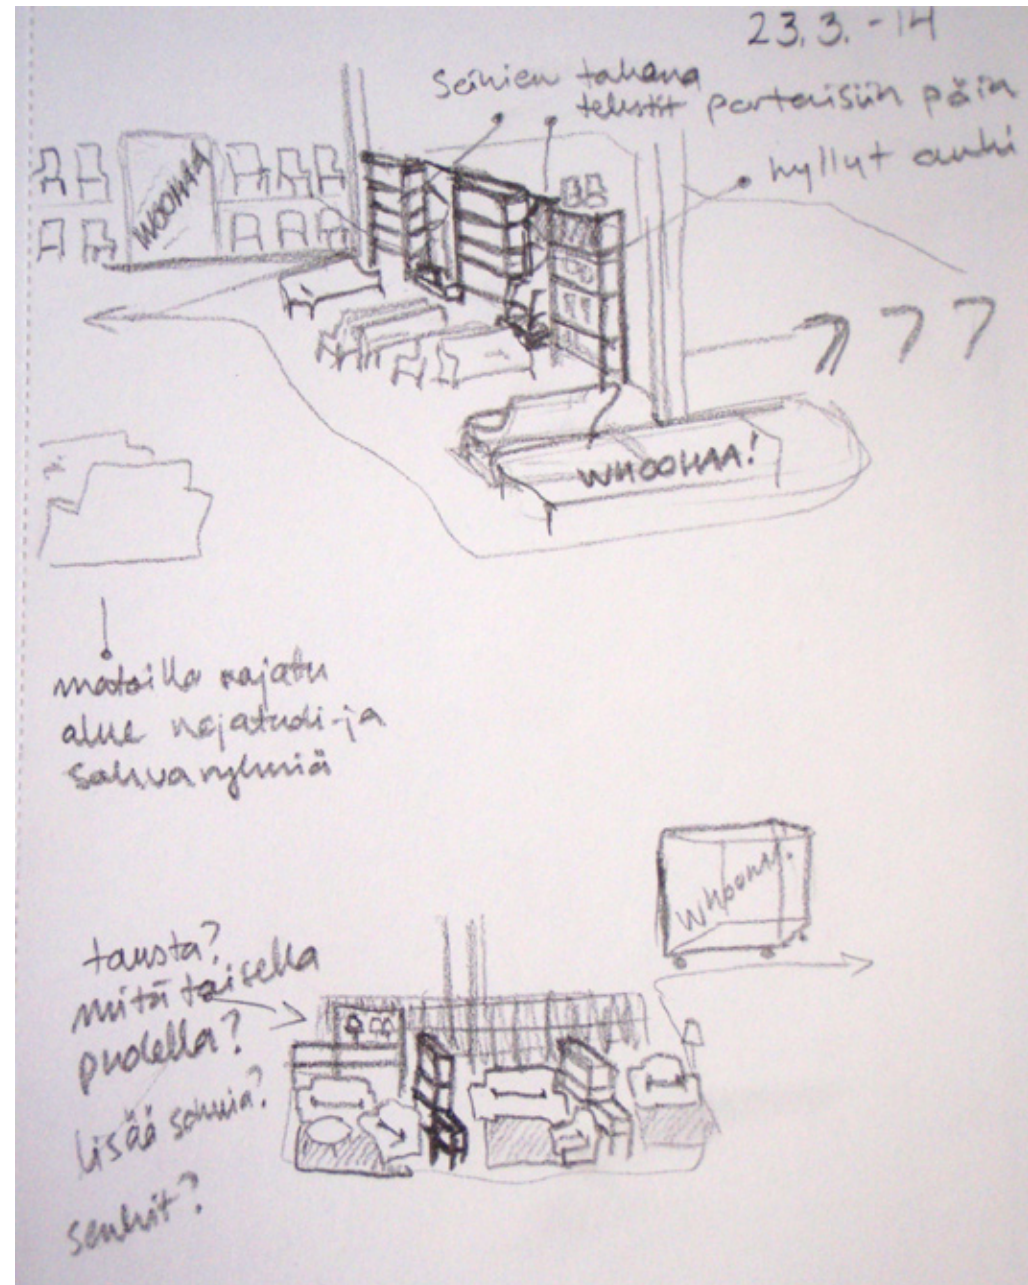 23.3.-14
Seinien takana
tekstit portaisiin päin
hyllyt auki
WOOHAA
777
WHOOHAA!
matoilla rajattu
alue nojatuoli-ja
sohvaryhmiä
tausta?
mitä toisella
puolella?
lisää sohvia?